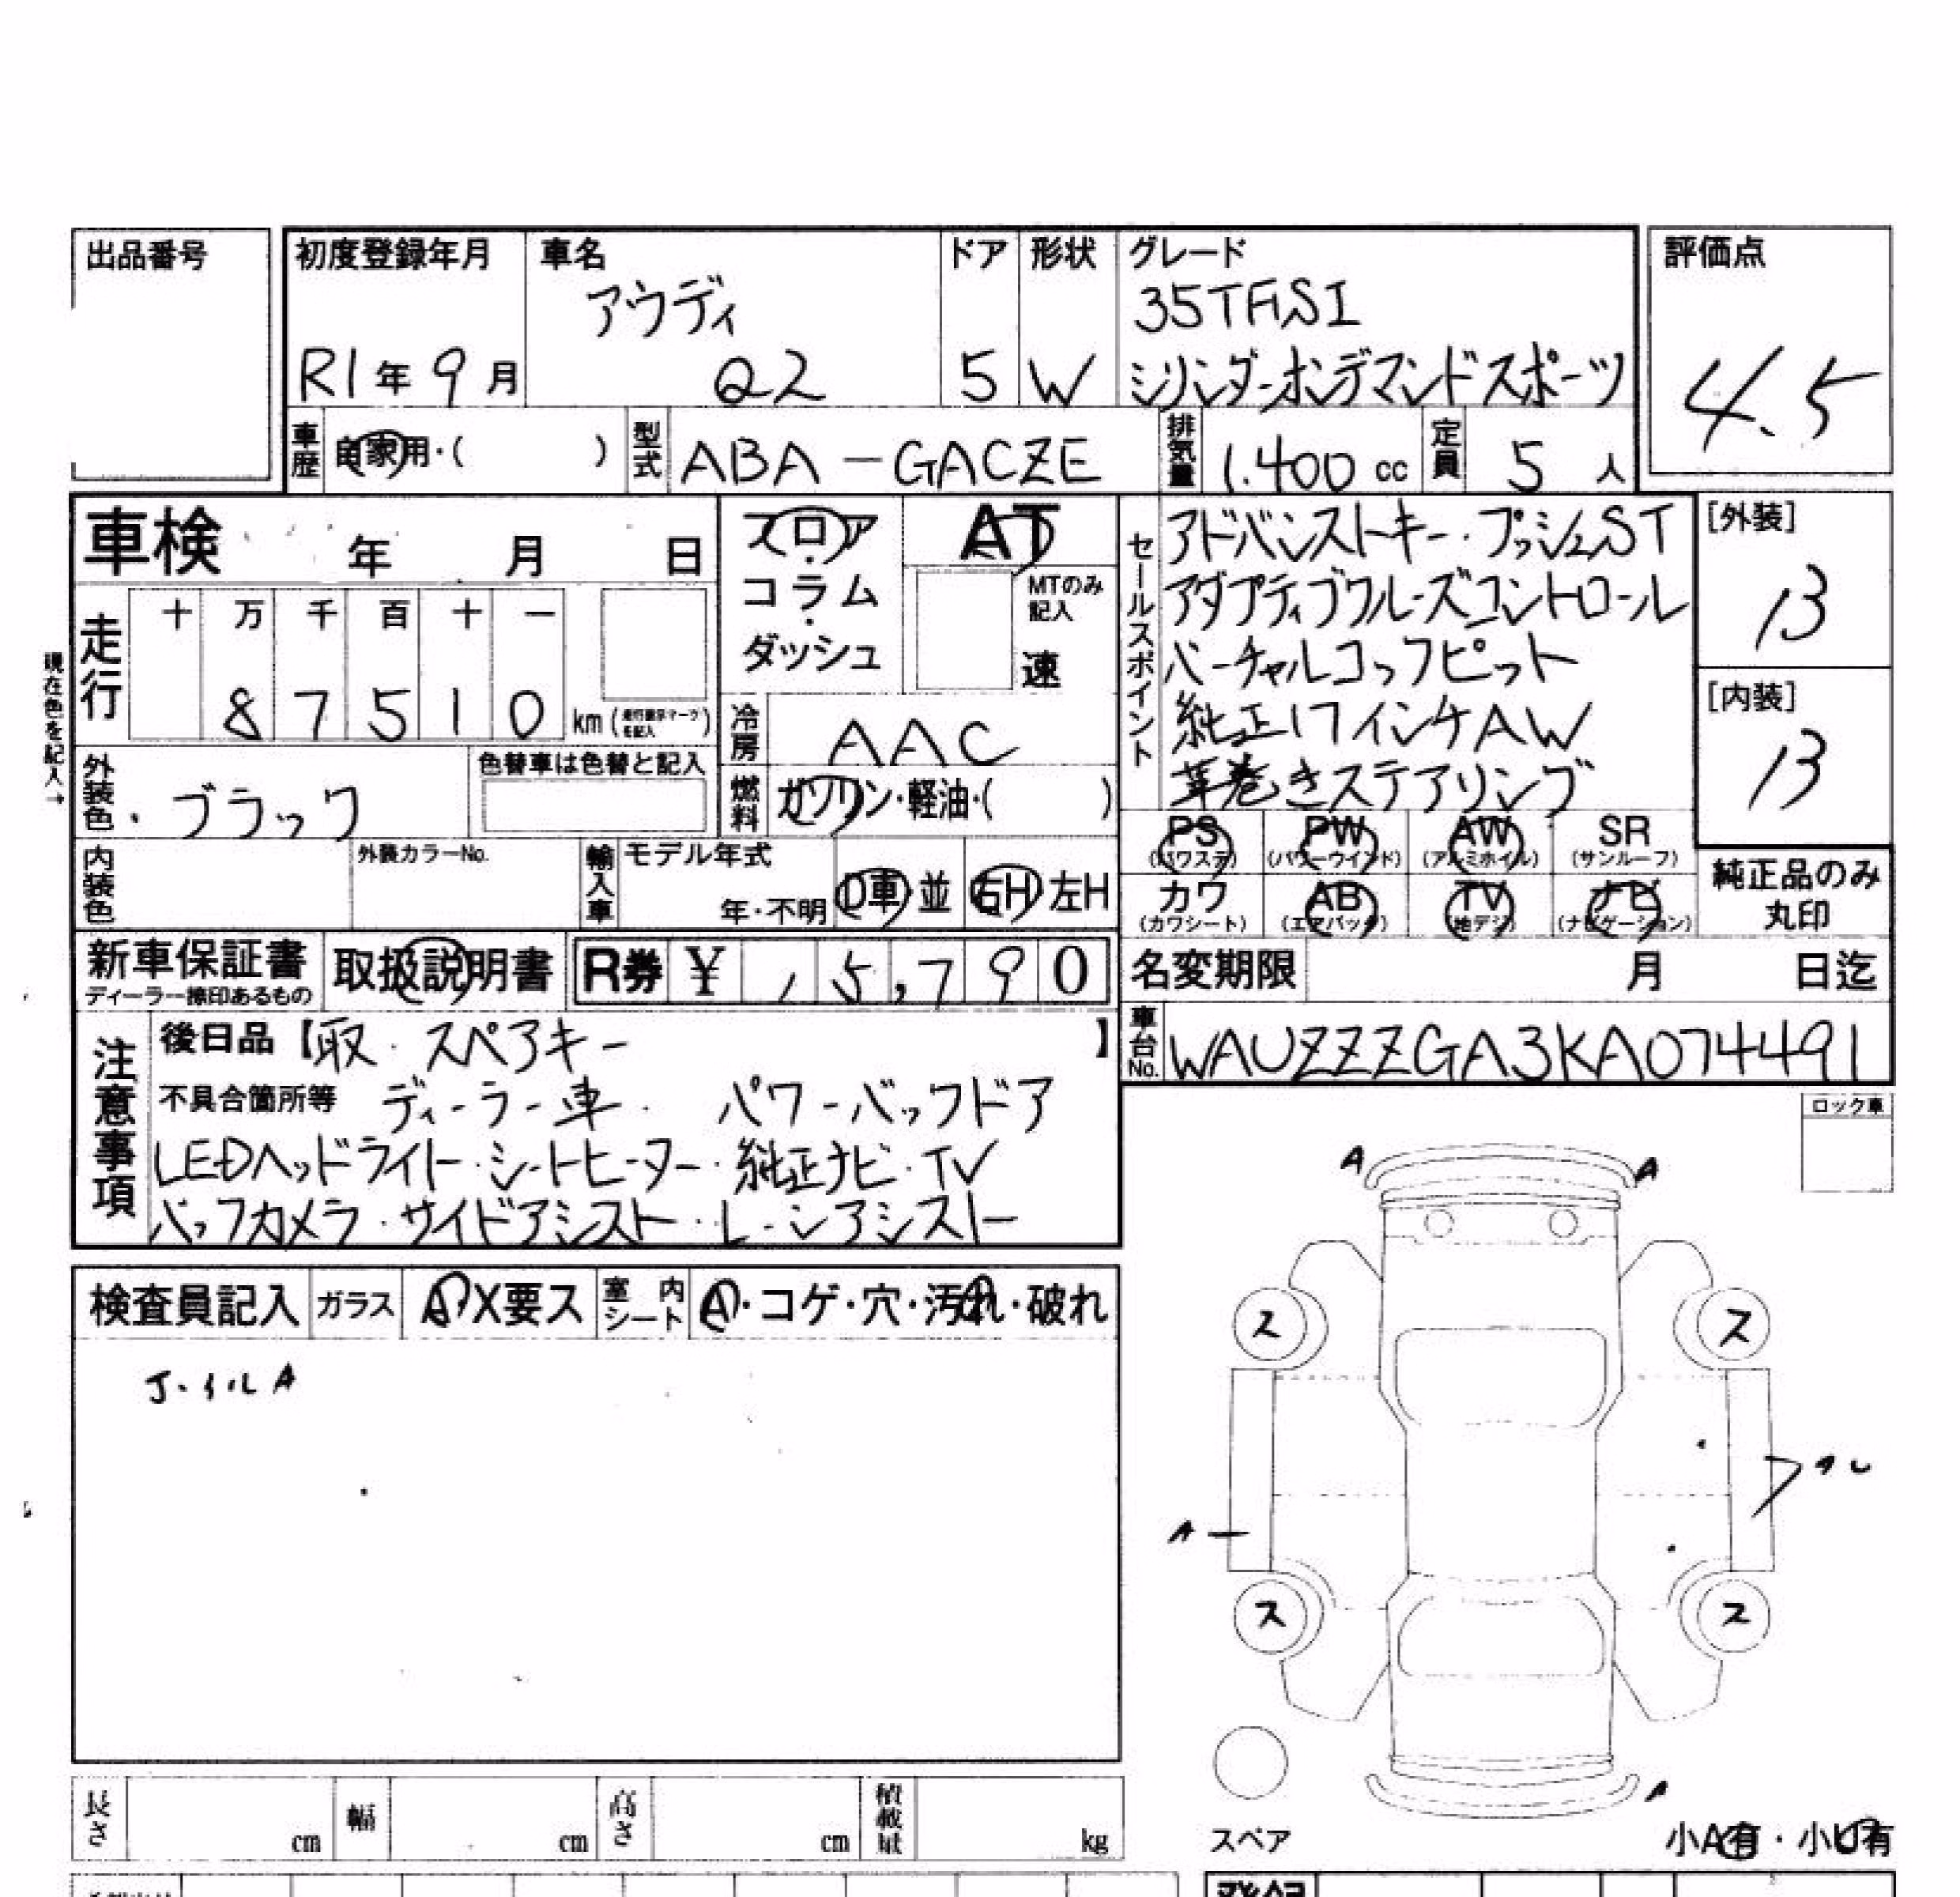 出品番号
初度登録年月 車名 ドア 形状 グレード 評価点
アウディ 35TFSI
R1年9月 Q2 5 W シリンダーオンデマンドスポーツ 4.5
車歴 自家用・( ) 型式 ABA-GACZE 排気量 1.400cc 定員 5人
車検 年 月 日
フロア・コラム・ダッシュ
AT
MTのみ記入
速
走行 十 万 千 百 十 一
8 7 5 1 0 km
現在色を記入→
冷房 AAC
外装色 ・ブラック 色替車は色替と記入
燃料 ガソリン・軽油・( )
内装色 外装カラーNo. 輸入車 モデル年式 年・不明 D車・並 右H 左H
セールスポイント
アドバンストキー・プッシュST
アダプティブクルーズコントロール
バーチャルコックピット
純正17インチAW
革巻きステアリング
[外装]
13
[内装]
13
PS (パワステ) PW (パワーウインド) AW (アルミホイル) SR (サンルーフ)
カワ (カワシート) AB (エアバック) TV (地デジ) ナビ (ナビゲーション)
純正品のみ丸印
新車保証書 ディーラー捺印あるもの 取扱説明書 R券 ¥ 15,790
名変期限 月 日迄
車台No. WAUZZZGA3KA074491
注意事項
後日品【取・スペアキー 】
不具合箇所等 ディーラー車・ パワーバックドア
LEDヘッドライト・シートヒーター・純正ナビ・TV
バックカメラ・サイドアシスト・レーンアシスト
ロック車
検査員記入 ガラス A・X要ス 室内シート A・コゲ・穴・汚れ・破れ
A A
ス ス
A
ス ス
A
スペア
小A有・小U有
長さ cm 幅 cm 高さ cm 積載量 kg